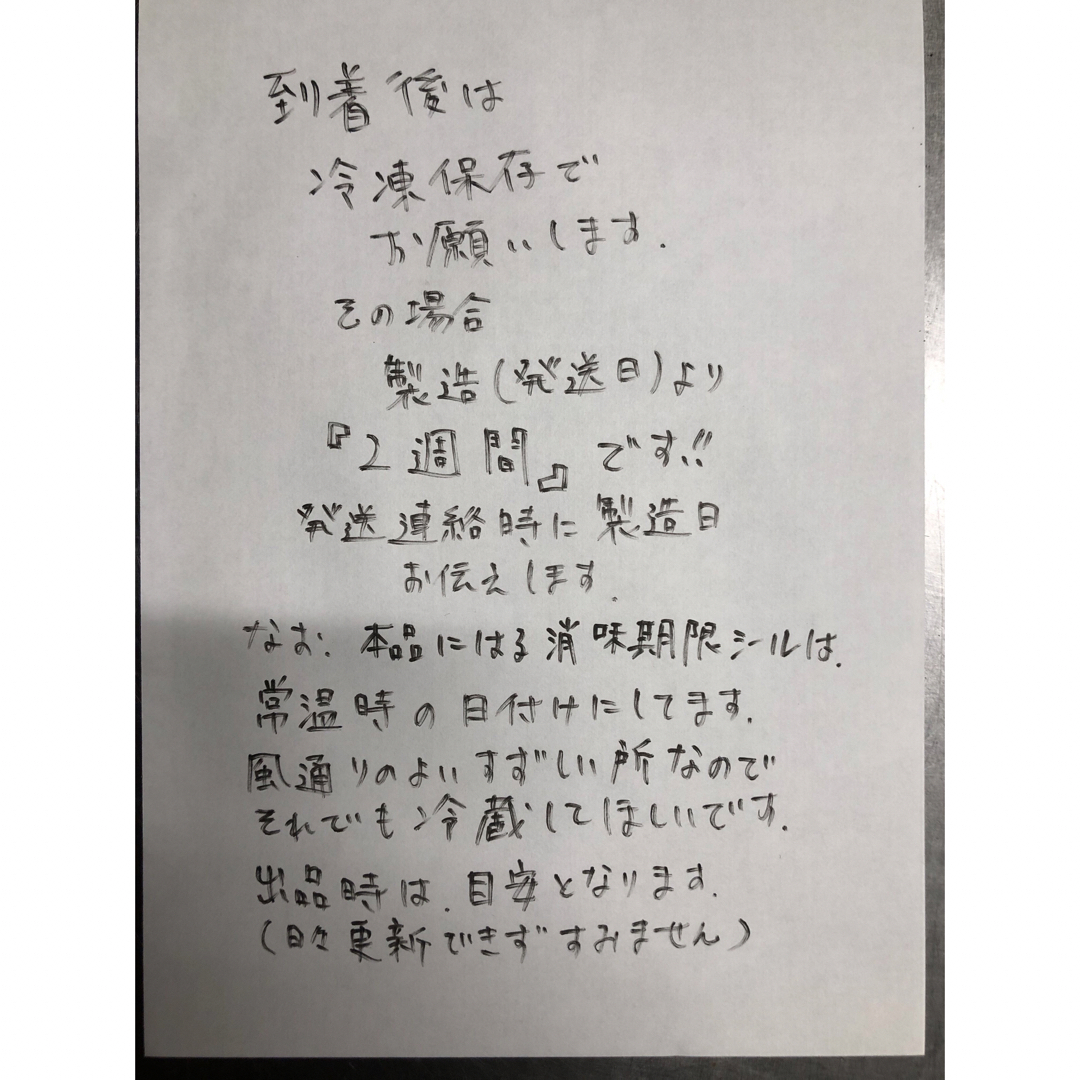 到着後は
冷凍保存で
お願いします.
その場合
製造(発送日)より
『2週間』です!!
発送連絡時に製造日
お伝えします.
なお. 本品にはる消味期限シールは.
常温時の日付けにしてます.
風通りのよいすずしい所なので
それでも冷蔵してほしいです.
出品時は. 目安となります.
(日々更新できずすみません)